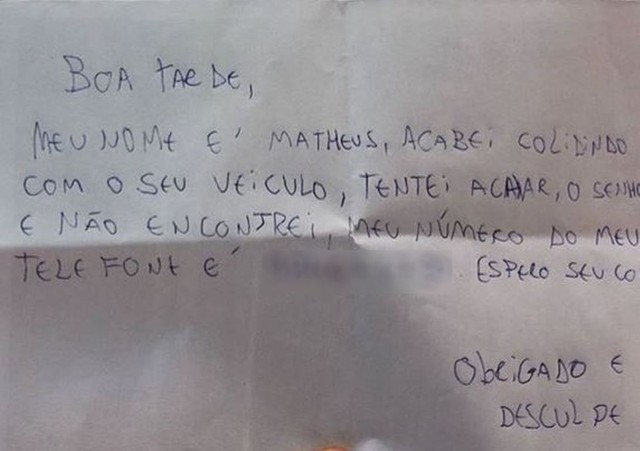 BOA TARDE,
MEU NOME E' MATHEUS, ACABEI COLIDINDO
COM O SEU VEICULO, TENTEI ACHAR, O SENHO
E NÃO ENCONTREI, MEU NÚMERO DO MEU
TELEFONE E' . ESPERO SEU CO
ObRIGADO E
DESCULPE